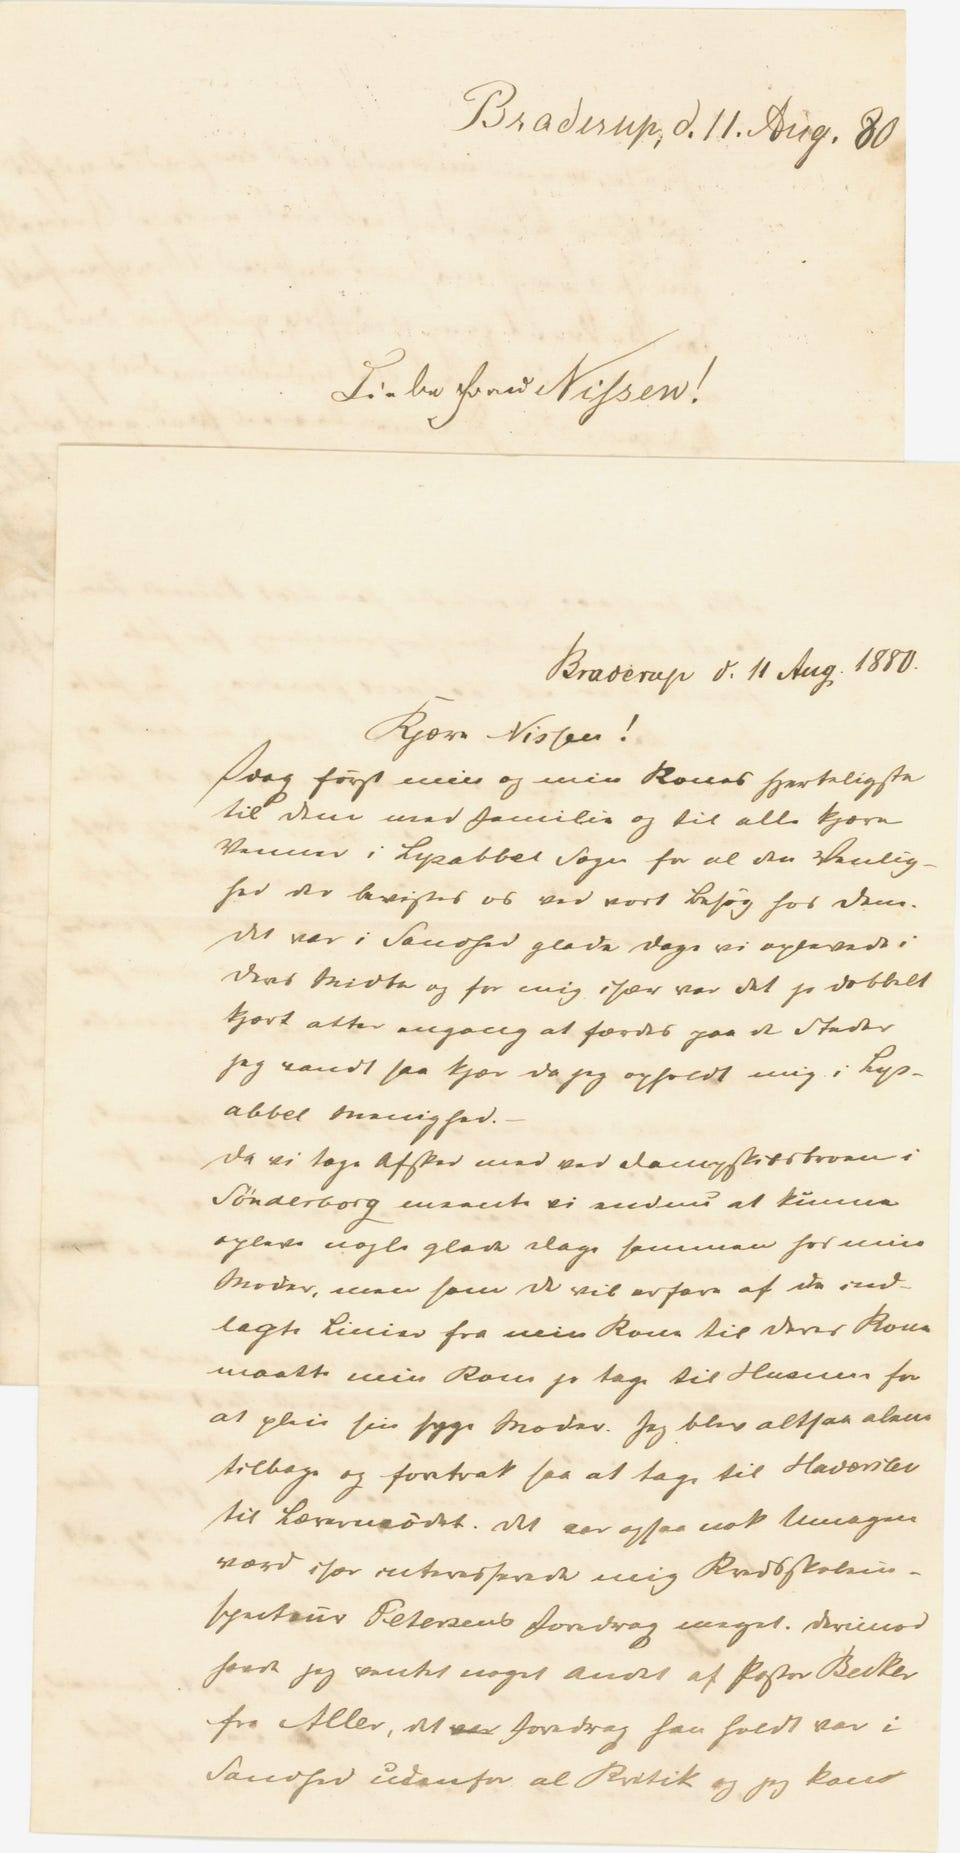 Braderup, d. 11. Aug. 80
Liebe Frau Nissen!
Braderup d. 11 Aug. 1880.
Kjære Nissen!
først min og min Kones hjerteligste
til dem med Familie og til alle kjære
Venner i Lysabbel Sogn for al den Venlig-
hed der bevistes os ved vort Besøg hos dem.
det var i Sandhed glade dage vi oplevede i
deres Midte og for mig især var det jo dobbelt
kjært atter engang at færdes paa de Steder
jeg vandt saa kjær da jeg opholdt mig i Lys-
abbel Menighed. —
da vi toge Afsked med ved dampskibsbroen i
Sönderborg meente vi endnu at kunne
opleve nogle glade dage sammen hos min
Moder, men som de vil erfare af de ind-
lagte Linier fra min Kone til deres Kone
maatte min Kone jo tage til Husum for
at pleie sin syge Moder. Jeg blev altsaa alene
tilbage og foretrak saa at tage til Haderslev
til Lærermödet. det var ogsaa nok Umagen
værd især interesserede mig Kredsskolein-
specteur Petersens Foredrag meget. derimod
havde jeg ventet noget andet af Pastor Becker
fra Aller, det var Foredrag han holdt var i
Sandhed udenfor al Kritik og jeg kand